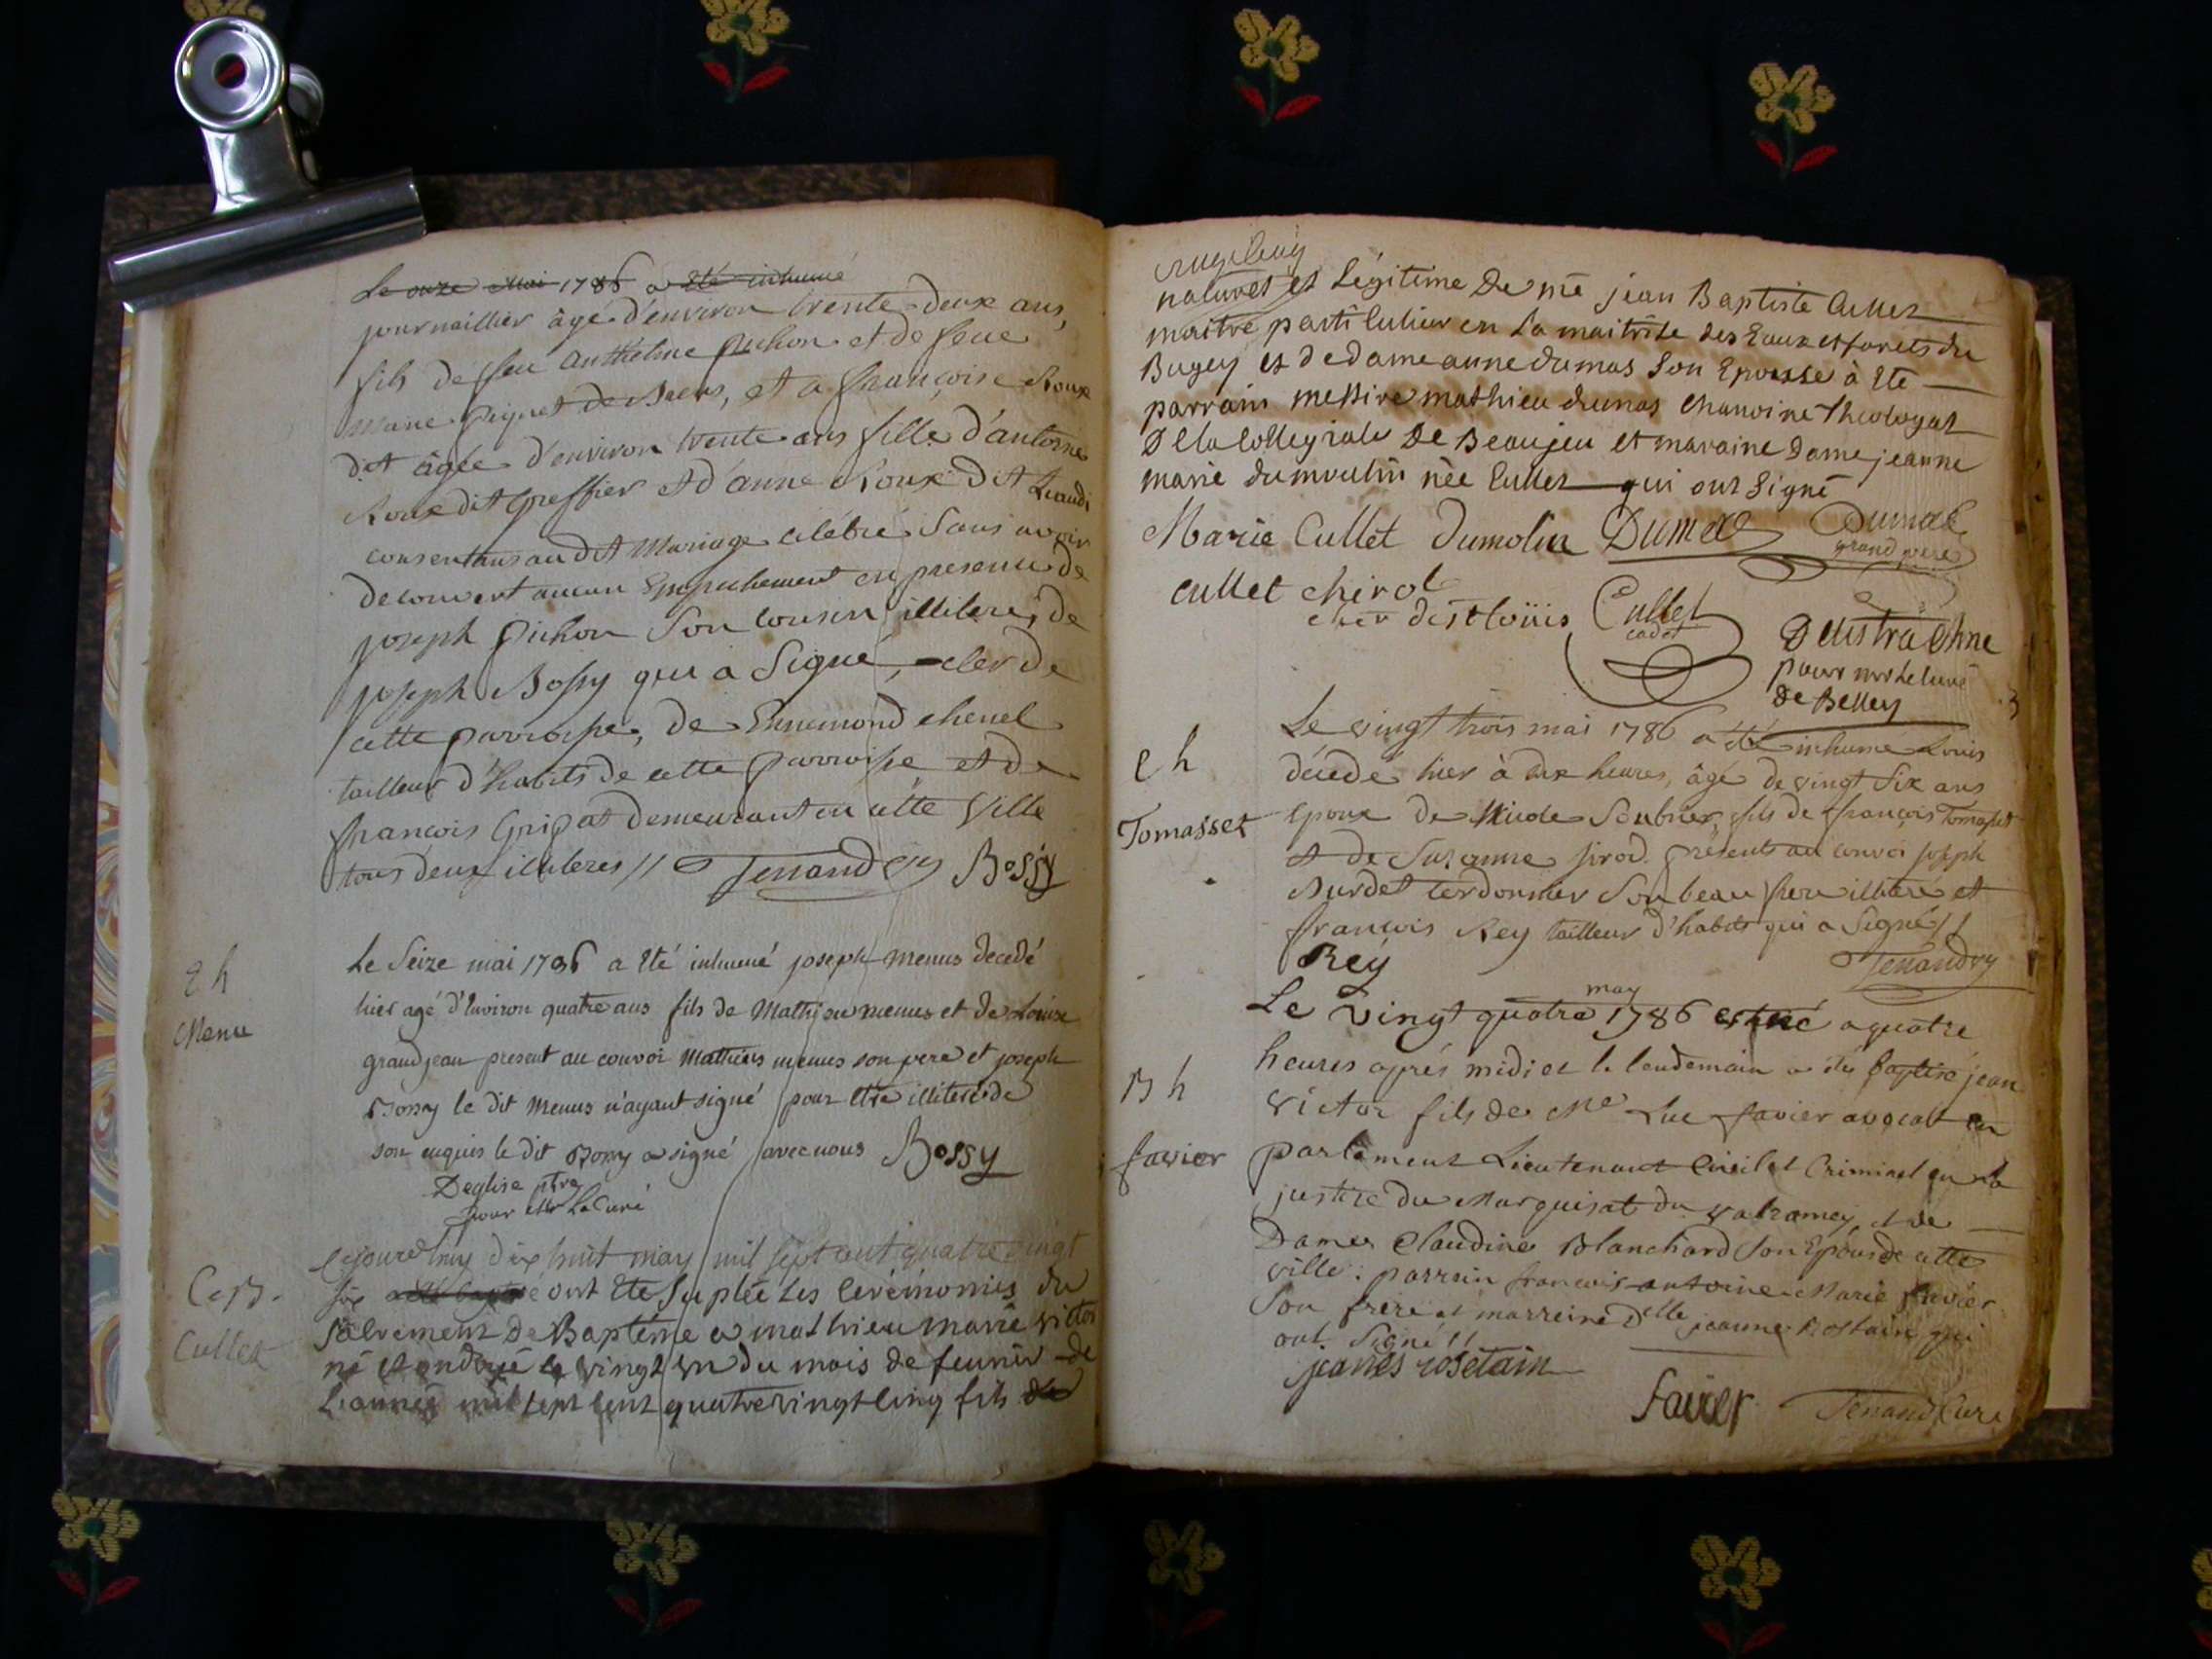 Le onze Mai 1786 a été inhumé
journaillier âgé d'environ trente deux ans,
fils de feu Anthelme pichon et de feue
Marie piquet de Baens, et a françoise Roux
dit âgée d'environ trente ans fille d'antoine
Roux dit greffier et d'anne Roux dit
consentans audit Mariage célébré Sans avoir
decouvert aucun Empechement en presence de
joseph pichon Son cousin illiteré, de
joseph Bossy qui a Signé, clerc de
cette parroisse, de Ennemond chenel
tailleur d'habits de cette parroisse et de
françois Gripat demeurant en cette Ville
tous deux illiteres // Tenand Bossy
Sh
Menu
Le Seize mai 1786 a Eté inhumé joseph menus decedé
hier agé d'Environ quatre ans fils de Mathieu menus et de Louise
grandjean present au convoi Mathieu menus son pere et joseph
Bossy le dit Menus n'ayant signé pour être illiteré de
son enquis le dit Bossy a signé avec nous Bossy
Deglise ptre
pour Mr Le Curé
C. B.
Cullet
Cejourd'huy dix huit may mil sept cent quatre vingt
six a été baptisé ont Ete Suplée Les Cérémonies du
Sacrement De Baptéme a mathieu marie victor
né et ondoyé le vingt un du mois de feuvrier de
L'année mil sept cent quatre vingt cinq fils de
naturel et Légitime De me jean Baptiste Cullet
maitre particulier en La maitrise des Eaux et forets du
Bugey et de dame anne dumas Son Epousse à Ete
parrain messire mathieu dumas chanoine theologal
De la Collegiale De Beaujeu et maraine Dame jeanne
marie dumoulin née Cullet qui ont Signé
Marie Cullet Dumolin Dumas Dumas
grand pere
cullet chirol
cher de st loüis Cullet
cadet
Delestra Chne
pour mr le curé
De Belley
Sh
Tomasset
Le vingt trois mai 1786 a été inhumé Louis
décédé hier à dix heures, âgé de vingt Six ans
Epoux de Soubner, fils de françois Tomasset
et de Suzanne jirod. présents au convoi joseph
Burdet Cordonnier Son beau frere illiteré et
françois Rey tailleur d'habits qui a Signé //
Rey Tenand
Bh
favier
may
Le vingt quatre 1786 est né a quatre
heures après midi et le lendemain a été baptisé jean
victor fils de Me Luc favier avocat en
parlement Lieutenant Civil et Criminel en la
justice du Marquisat du valromey, et de
Dame Claudine Blanchard Son Epouse de cette
ville. parrain francois antoine Marie favier
Son frere et marreine Delle jeanne Rostain qui
ont Signé //
jeanes rosetain
favier Tenand Curé